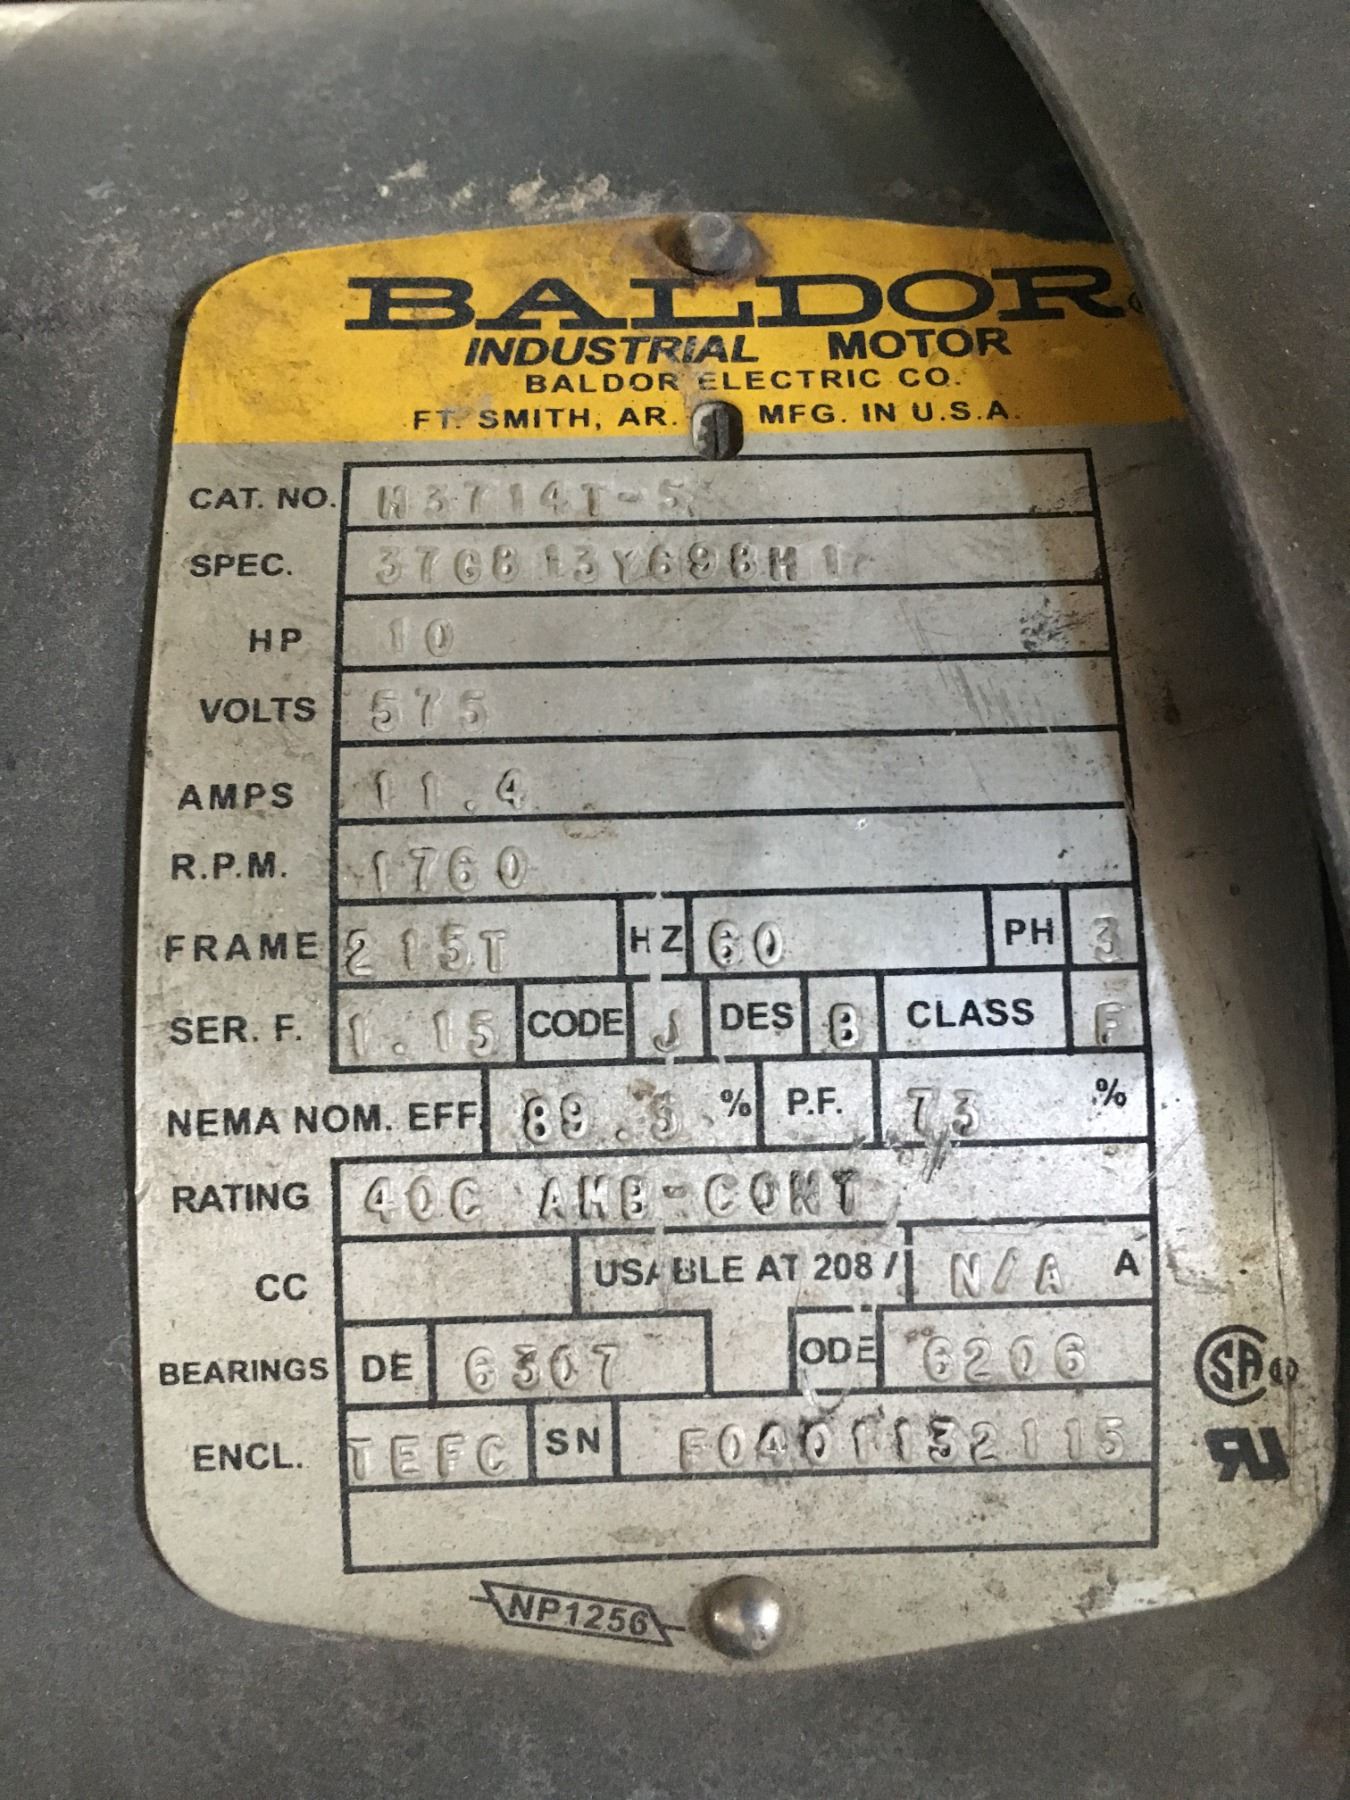 BALDOR
INDUSTRIAL MOTOR
BALDOR ELECTRIC CO.
FT. SMITH, AR. MFG. IN U.S.A.
CAT. NO. M3714T-5
SPEC. 37G813Y698H1
HP 10
VOLTS 575
AMPS 11.4
R.P.M. 1760
FRAME 215T HZ 60 PH 3
SER. F. 1.15 CODE J DES B CLASS F
NEMA NOM. EFF. 89.5 % P.F. 73 %
RATING 40C AMB-CONT
CC USABLE AT 208 / N/A A
BEARINGS DE 6307 ODE 6206
ENCL. TEFC SN F0401132115
SA
UR
NP1256